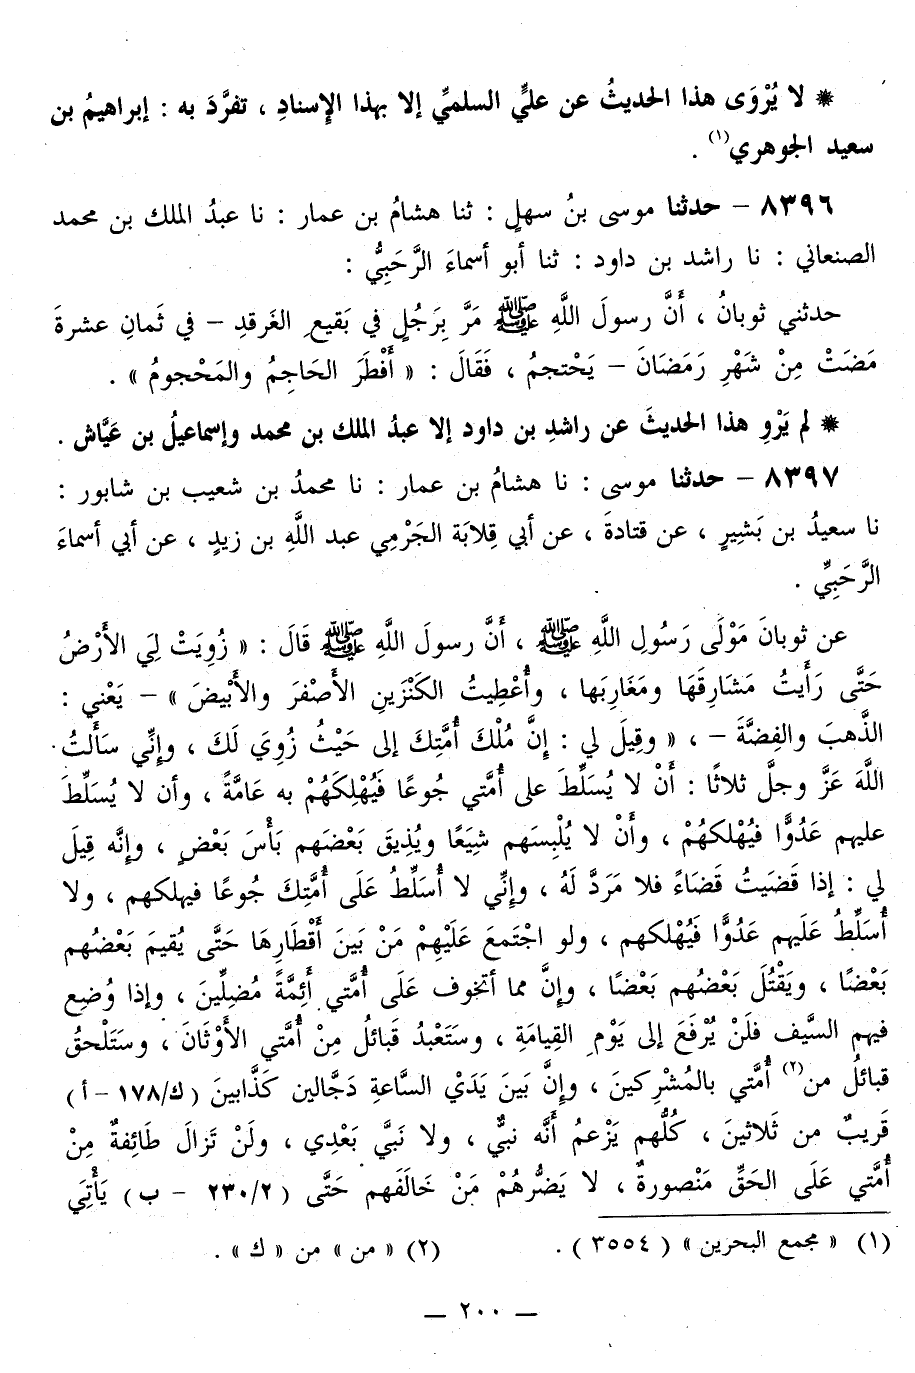 * لا يُرْوَى هذا الحديثُ عن عليٍّ السلميِّ إلا بهذا الإِسنادِ ، تفرَّدَ به : إبراهيمُ بن
سعيد الجوهري(١) .
٨٣٩٦ – حدثنا موسى بنُ سهلٍ : ثنا هشامُ بن عمار : نا عبدُ الملك بن محمد
الصنعاني : نا راشد بن داود : ثنا أبو أسماءَ الرَّحَبِيُّ :
حدثني ثوبانُ ، أَنَّ رسولَ اللَّهِ ﷺ مَرَّ بِرَجُلٍ في بَقيعِ الغَرقدِ – في ثَمانِ عشرةَ
مَضَتْ مِنْ شَهْرِ رَمَضَانَ – يَحْتجمُ ، فَقَالَ : « أَفْطَرَ الحَاجِمُ والمَحْجومُ » .
* لم يَرْوِ هذا الحديثَ عن راشدِ بن داود إلا عبدُ الملك بن محمد وإسماعيلُ بن عَيَّاش .
٨٣٩٧ – حدثنا موسى : نا هشامُ بن عمار : نا محمدُ بن شعيب بن شابور :
نا سعيدُ بن بَشِيرٍ ، عن قتادةَ ، عن أبي قِلابَة الجَرْمِي عبد اللَّهِ بن زيدٍ ، عن أبي أسماءَ
الرَّحَبِيِّ .
عن ثوبانَ مَوْلَى رَسُولِ اللَّهِ ﷺ ، أَنَّ رسولَ اللَّهِ ﷺ قَالَ : « زُوِيَتْ لِيَ الأَرْضُ
حَتَّى رَأَيتُ مَشَارِقَهَا ومَغَارِبَها ، وأُعْطِيتُ الكَنْزَينِ الأَصْفَرَ والأَبْيضَ » – يَعْني :
الذَّهبَ والفِضَّةَ – ، « وقِيلَ لي : إِنَّ مُلْكَ أُمَّتِكَ إلى حَيْثُ زُوِيَ لَكَ ، وإنِّي سَأَلتُ
اللَّهَ عَزَّ وجلَّ ثلاثًا : أَنْ لا يُسَلِّطَ على أُمَّتي جُوعًا فَيُهْلِكَهُمْ به عَامَّةً ، وأن لا يُسَلِّطَ
عليهم عَدُوًّا فيُهْلكهُمْ ، وأَنْ لا يُلْبِسَهم شِيَعًا ويُذِيقَ بَعْضَهم بَأْسَ بَعْضٍ ، وإنَّه قِيلَ
لي : إذا قَضَيتُ قَضَاءً فلا مَرَدَّ لَهُ ، وإنِّي لا أُسَلِّطُ عَلَى أُمَّتِكَ جُوعًا فيهلكهم ، ولا
أُسَلِّطُ عَلَيهم عَدُوًّا فَيُهْلكهم ، ولو اجْتَمعَ عَلَيْهِمْ مَنْ بَينَ أَقْطَارِهَا حَتَّى يُقيمَ بَعْضُهم
بَعْضًا ، ويَقْتُلَ بَعْضُهم بَعْضًا ، وإنَّ مما أتخوف عَلَى أُمَّتي أَئِمَّةً مُضلِّينَ ، وإذا وُضعِ
فيهم السَّيف فلَنْ يُرْفَعَ إلى يَوْمِ القِيامَةِ ، وسَتَعْبدُ قَبائلُ مِنْ أُمَّتي الأَوْثَانَ ، وستَلْحقُ
قبائلُ من(٢) أُمَّتي بالمُشْركينَ ، وإِنَّ بَينَ يَدَيْ السَّاعةِ دَجَّالين كَذَّابينَ (ك/١٧٨ – أ)
قَريبٌ من ثَلاثينَ ، كُلُّهم يَزْعمُ أنَّه نبيٌّ ، ولا نَبيَّ بَعْدِي ، ولَنْ تَزالَ طَائِفةٌ مِنْ
أُمَّتي عَلَى الحَقِّ مَنْصورةٌ ، لا يَضرُّهُمْ مَنْ خَالَفَهم حَتَّى (٢/ ٢٣٠ – ب) يَأْتِيَ
(١) « مجمع البحرين » (٣٥٥٤) .
(٢) « من » من « ك » .
– ٢٠٠ –